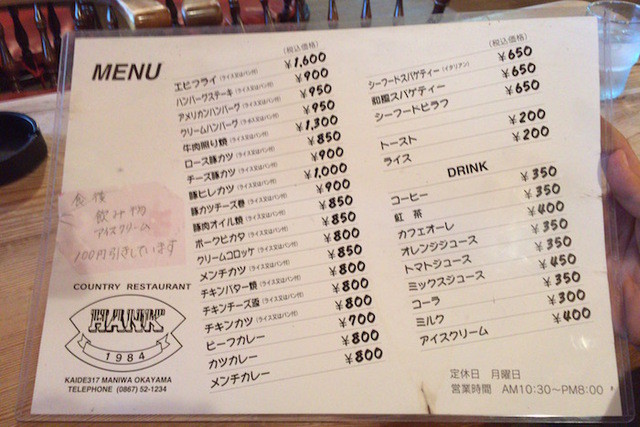 MENU
(税込価格)
エビフライ (ライス又はパン付) ¥1,600
ハンバーグステーキ (ライス又はパン付) ¥900
アメリカンハンバーグ (ライス又はパン付) ¥950
クリームハンバーグ (ライス又はパン付) ¥950
牛肉照り焼 (ライス又はパン付) ¥1,300
ロース豚カツ (ライス又はパン付) ¥850
チーズ豚カツ (ライス又はパン付) ¥900
豚ヒレカツ (ライス又はパン付) ¥1,000
豚カツチーズ巻 (ライス又はパン付) ¥900
豚肉オイル焼 (ライス又はパン付) ¥850
ポークピカタ (ライス又はパン付) ¥850
クリームコロッケ (ライス又はパン付) ¥800
メンチカツ (ライス又はパン付) ¥850
チキンバター焼 (ライス又はパン付) ¥800
チキンチーズ焼 (ライス又はパン付) ¥800
チキンカツ (ライス又はパン付) ¥800
ビーフカレー ¥700
カツカレー ¥800
メンチカレー ¥800
食後
飲み物
アイスクリーム
100円引きしています
COUNTRY RESTAURANT
HANK
1984
KAIDE317 MANIWA OKAYAMA
TELEPHONE (0867) 52-1234
(税込価格)
シーフードスパゲティー (イタリアン) ¥650
和風スパゲティー ¥650
シーフードピラフ ¥650
トースト ¥200
ライス ¥200
DRINK
コーヒー ¥350
紅 茶 ¥350
カフェオーレ ¥400
オレンジジュース ¥350
トマトジュース ¥350
ミックスジュース ¥450
コーラ ¥350
ミルク ¥300
アイスクリーム ¥400
定休日 月曜日
営業時間 AM10:30〜PM8:00